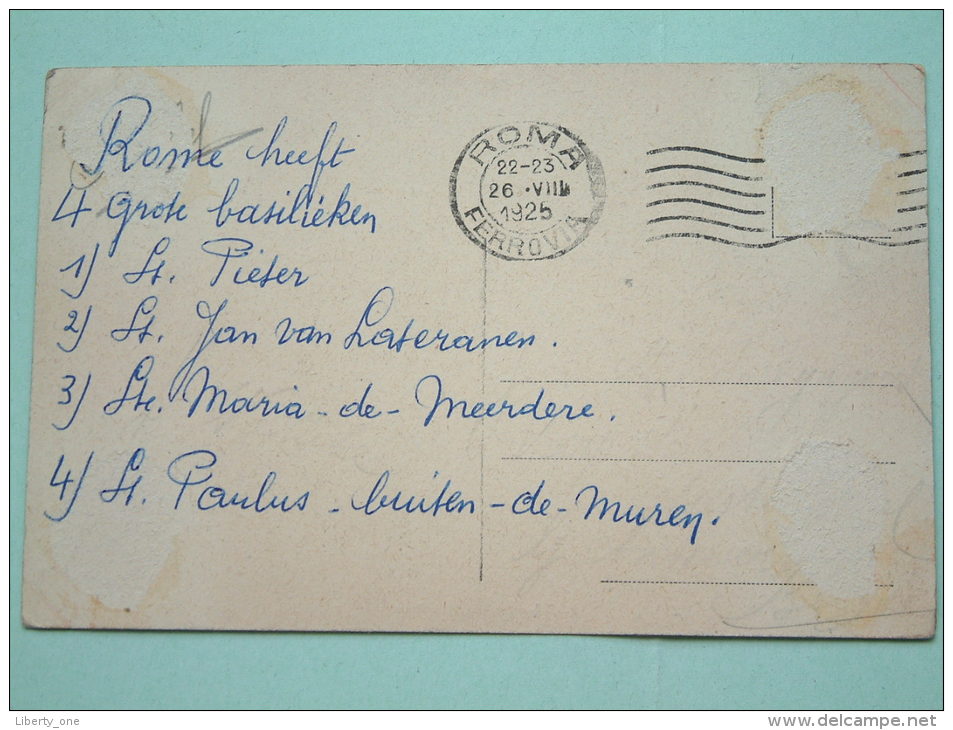 Rome heeft
4 grote basilieken
1) St. Pieter
2) St. Jan van Lateranen.
3) Ste. Maria-de-Meerdere.
4) St. Paulus-buiten-de-Muren.
ROMA
22-23
26 ·VIII
1925
FERROVIA
Liberty_one
www.delcampe.net